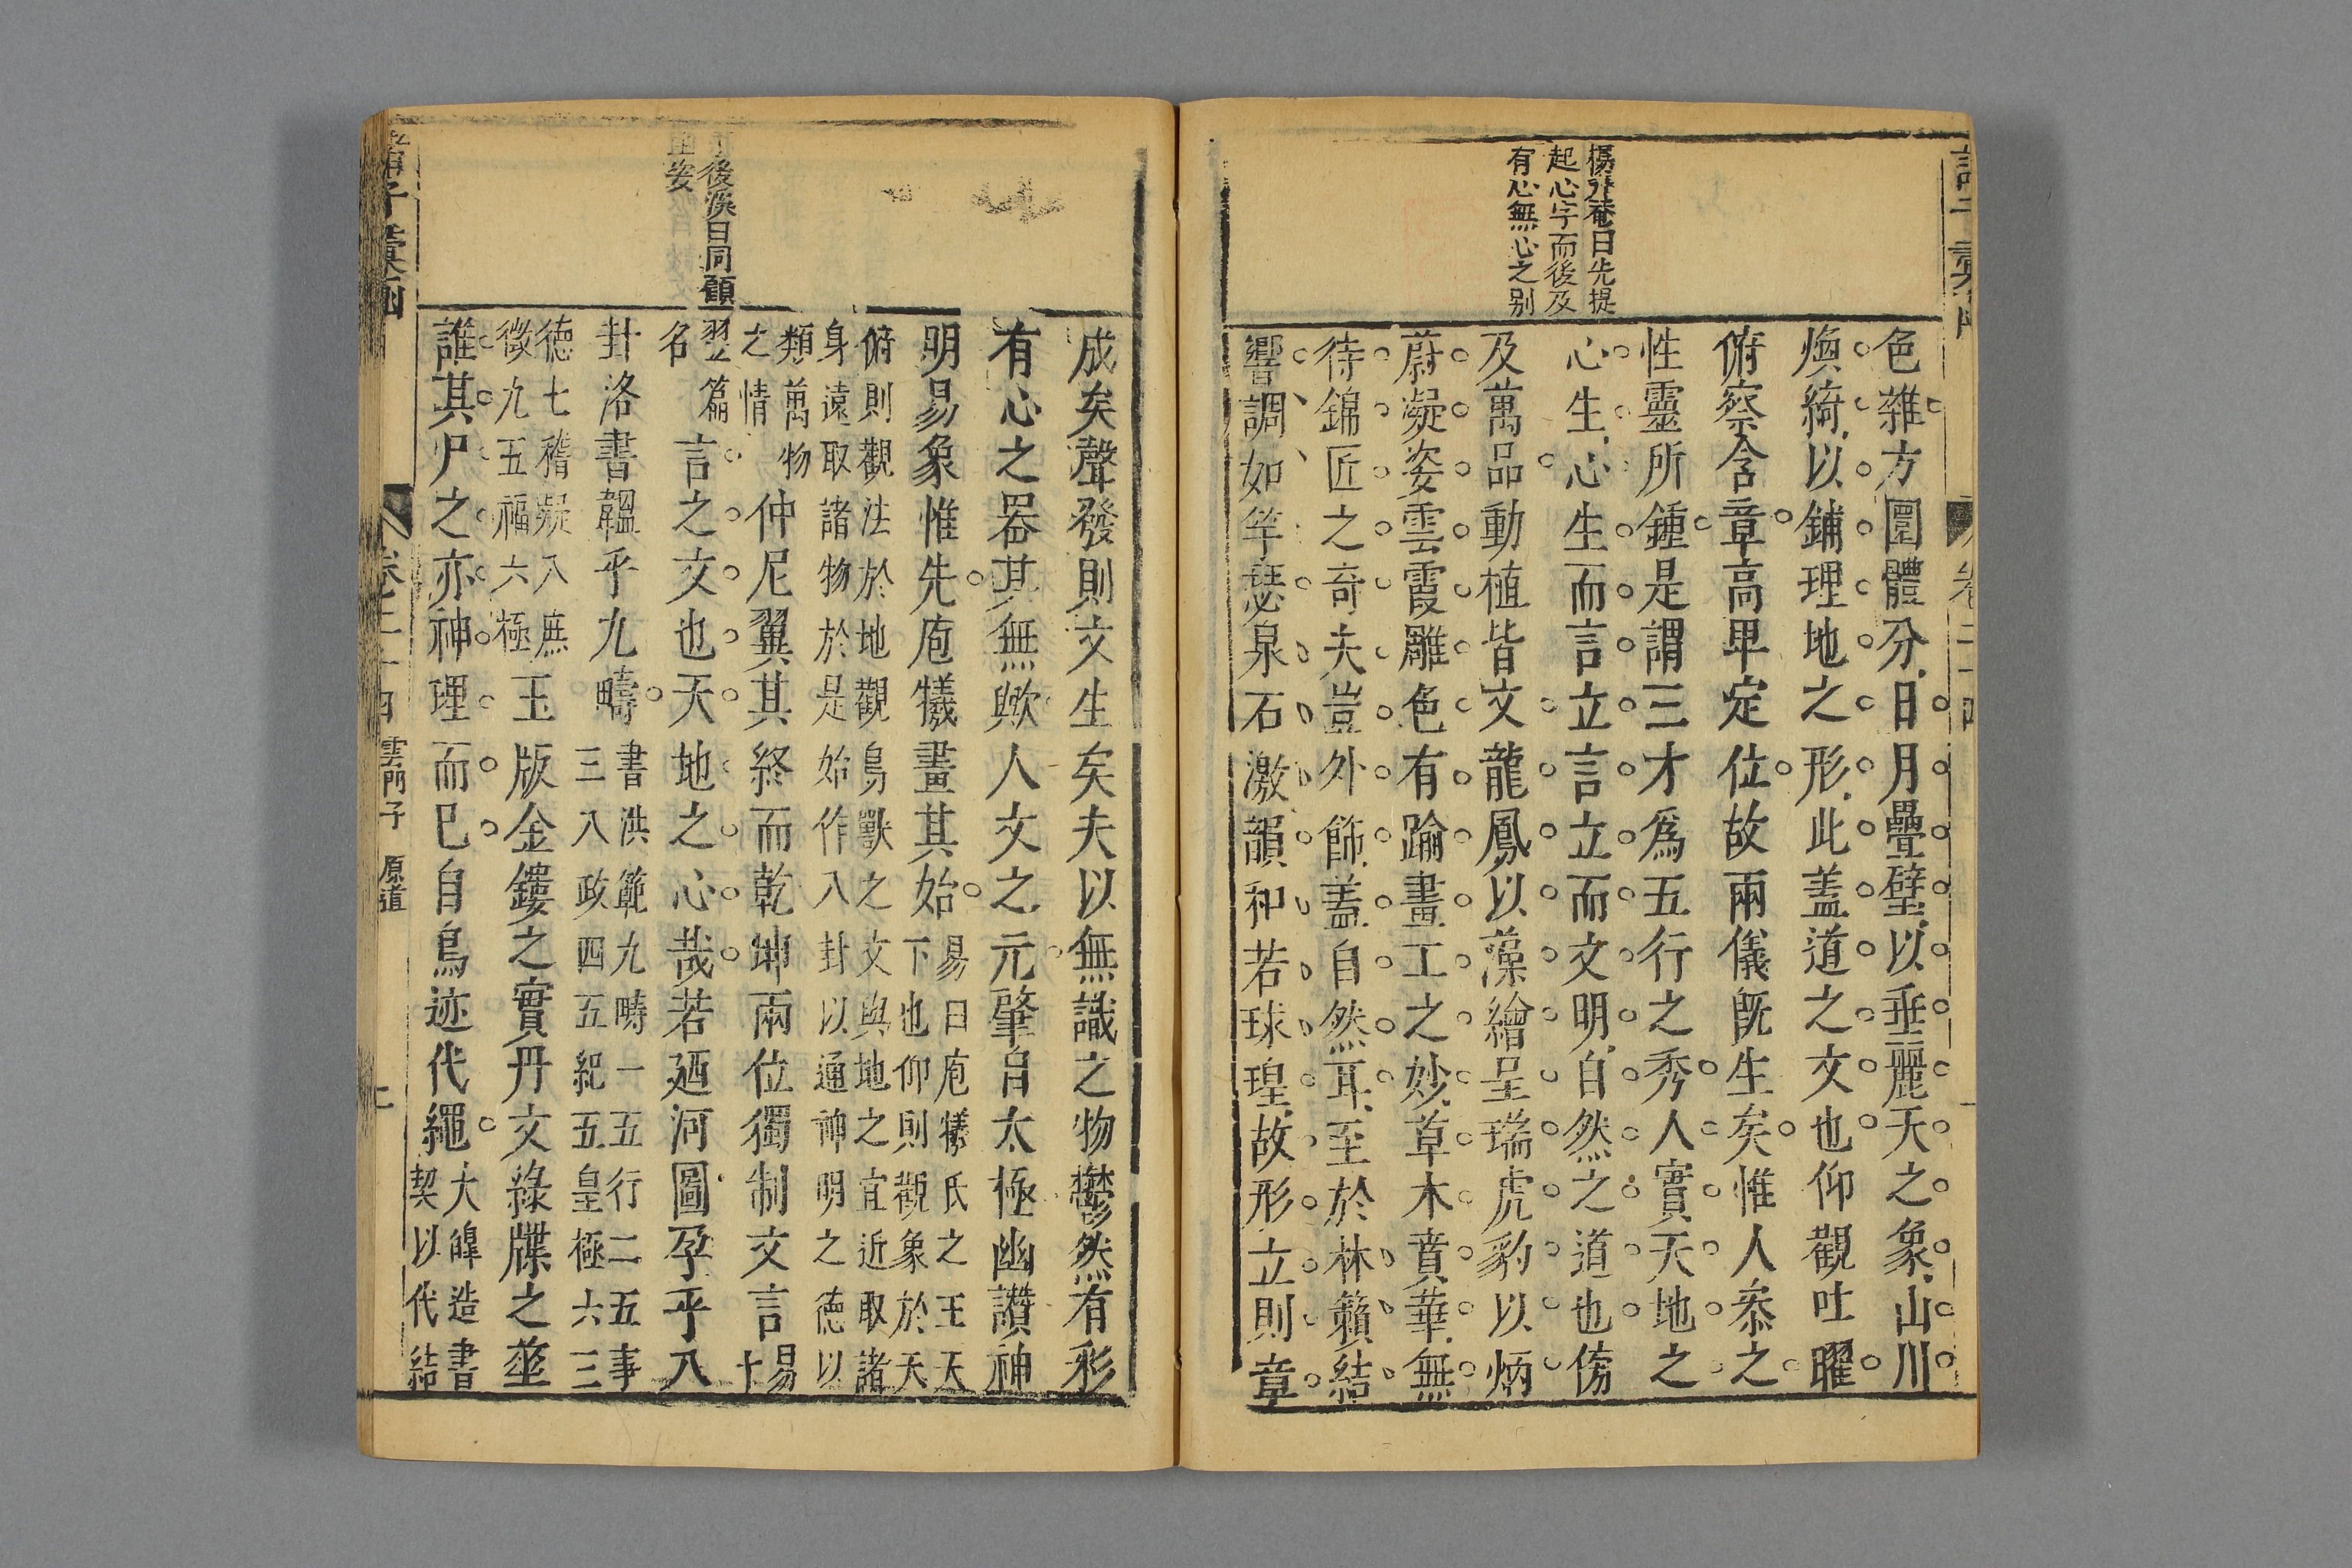 楊升菴曰先提
起心字而後及
有心無心之别
色雜方圓體分日月疊璧以垂麗天之象山川
煥綺以鋪理地之形此蓋道之文也仰觀吐曜
俯察含章高卑定位故兩儀旣生矣惟人叅之
性靈所鍾是謂三才爲五行之秀人實天地之
心生心生而言立言立而文明自然之道也傍
及萬品動植皆文龍鳳以藻繪呈瑞虎豹以炳
蔚凝姿雲霞雕色有踰畫工之妙草木賁華無
待錦匠之奇夫豈外飾蓋自然耳至於林籟結
響調如竽瑟泉石激韻和若球瑝故形立則章
後溪曰同顧
成矣聲發則文生矣夫以無識之物鬱然有彩
有心之器其無歟人文之元肇自太極幽讚神
明易象惟先庖犧畫其始
易曰庖犧氏之王天
下也仰則觀象於天
俯則觀法於地觀鳥獸之文與地之宜近取諸
身遠取諸物於是始作八卦以通神明之德以
類萬物
之情
仲尼翼其終而乾坤兩位獨制文言
易
十
翌篇
名
言之文也天地之心哉若廼河圖孕乎八
卦洛書韞乎九疇
書洪範九疇一五行二五事
三八政四五紀五皇極六三
德七稽疑八庶
徵九五福六極
玉版金鏤之實丹文綠牒之華
誰其尸之亦神理而已自鳥迹代繩
大皥造書
契以代結
雲門子
原道